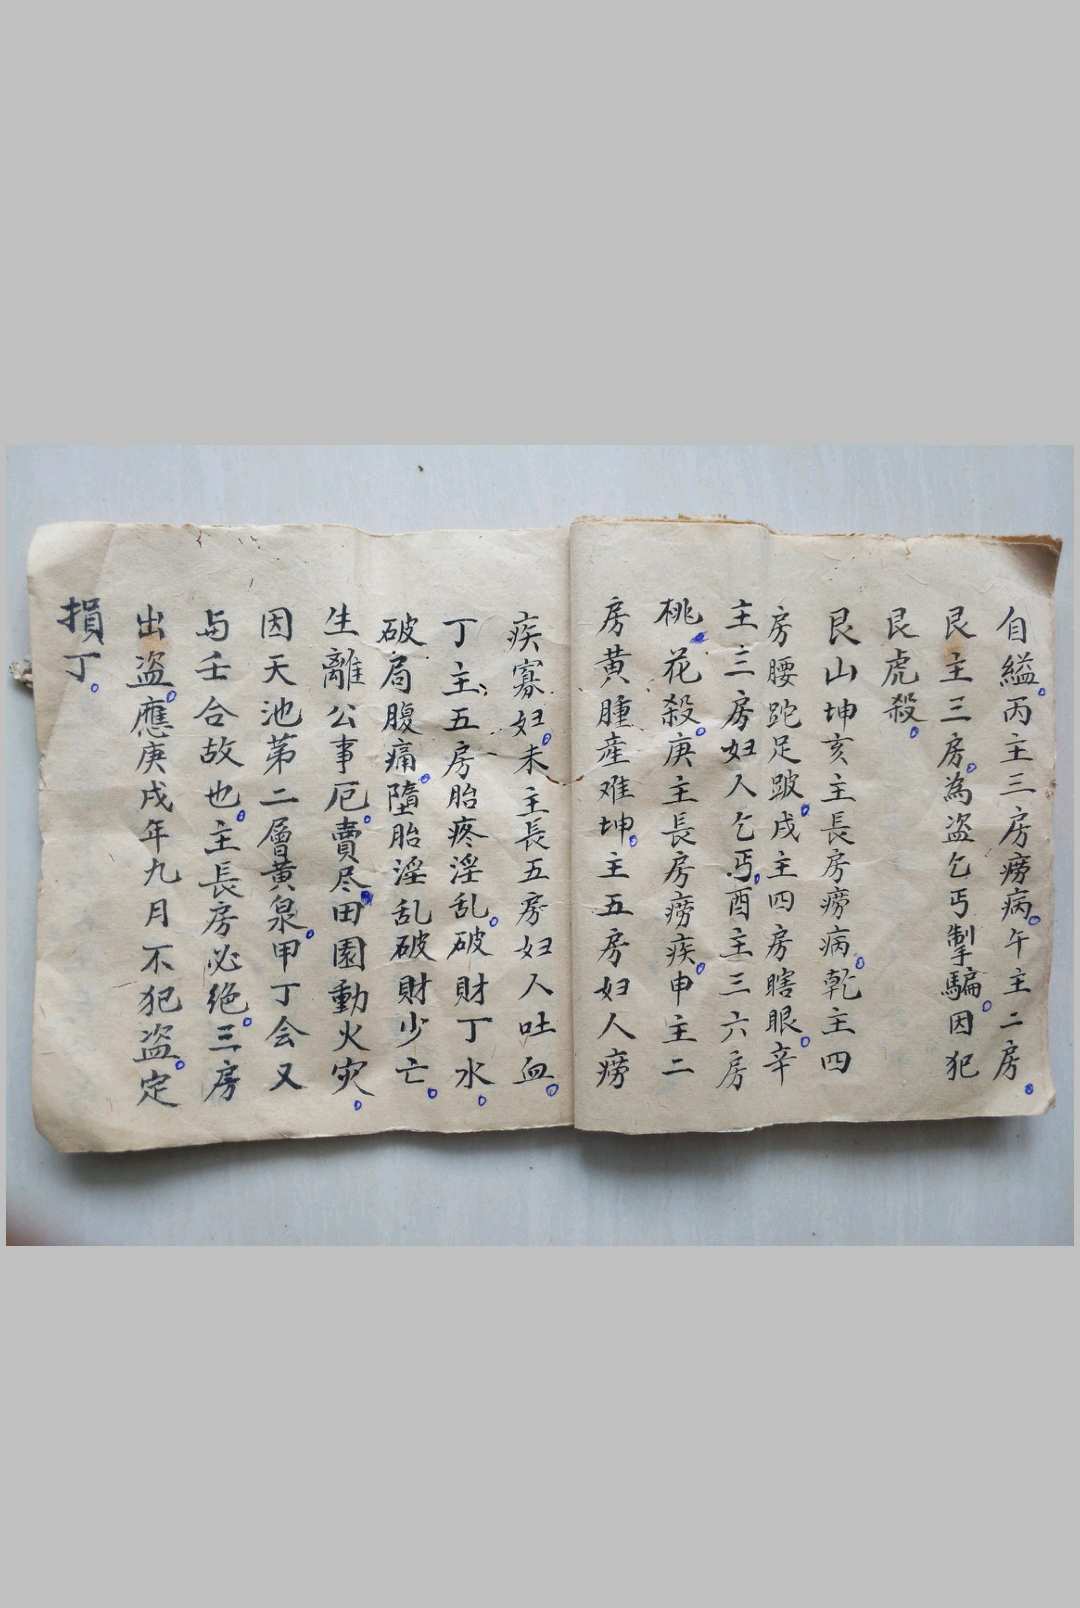 自縊。丙主三房癆病。午主二房。
艮主三房。為盗乞丐掣騙。因犯
艮虎殺。
艮山坤亥主長房癆病。乾主四
房腰跎足跛。戌主四房瞎眼。辛
主三房妇人乞丐。酉主三六房
桃。花殺。庚主長房癆疾。申主二
房黄腫產难坤。主五房妇人癆
疾寡妇。未主長五房妇人吐血。
丁主五房胎疼淫乱。破財丁水。
破局腹痛。墮胎淫乱破財少亡。
生離公事厄。賣尽田園動火灾。
因天池苐二層黄泉。甲丁会又
与壬合故也。主長房必绝。三房
出盗。應庚戌年九月不犯盗。定
損丁。